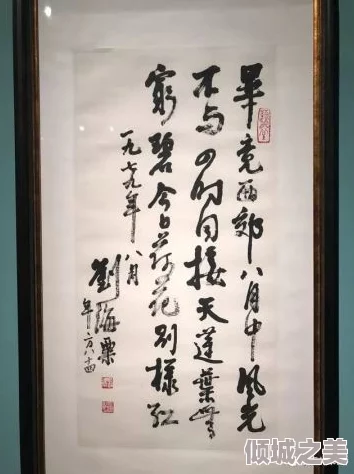 畢竟西郊八月中風光
不与四时同接天蓮葉無
窮碧今日荷花别樣紅
一九七九年八月
劉海粟
年方八十四
倾城之美